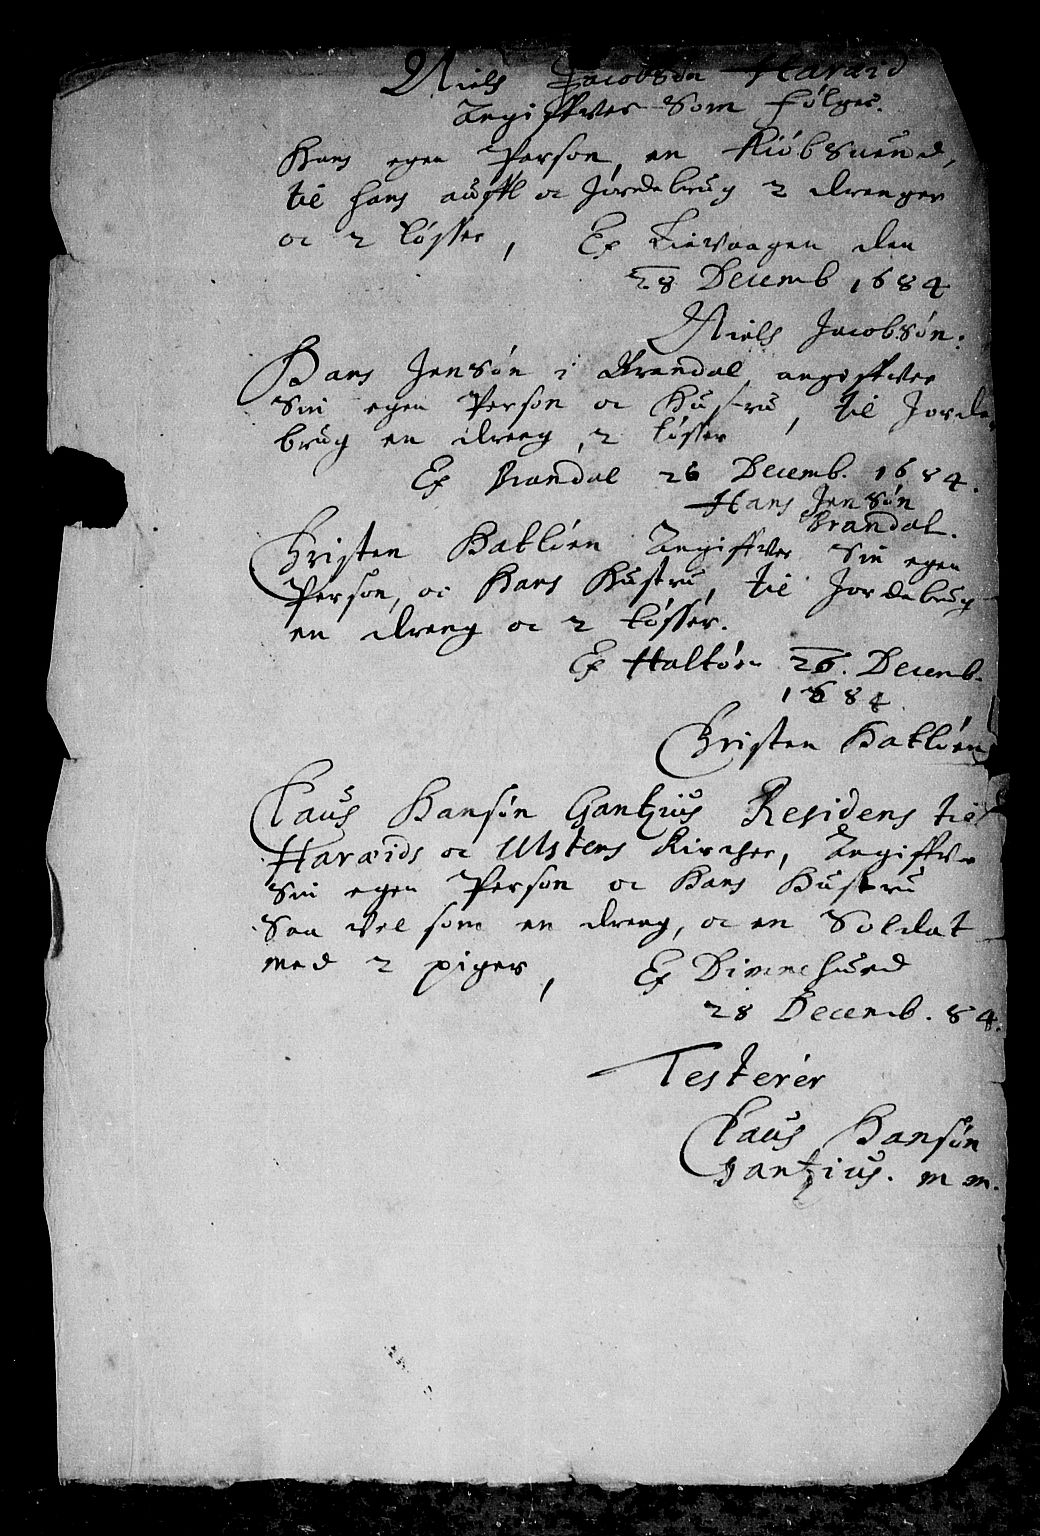 Niels Jacobsøn Haræid
Angiffver Som følger.
Hans egen Person, en Kiøbsuend,
til hans auffl oc Jordebrug 2 drenger
oc 2 tøsser, Ex Lievaagen den
28 Decemb 1684
Niels Jacobsøn.
Hans Jensøn i Brandal angiffver
Sin egen Person oc Hustru, til Jorde
brug en dreng, 2 tøsser
Ex Brandal 26 Decemb. 1684.
Hans Jensøn
Brandal.
Christen Hatløen Angiffver Sin egen
Person, oc Hans Hustru, til Jordebrug
en dreng oc 2 tøsser.
Ex Hatløen 26. Decemb.
1684
Christen Hatløen
Claus Hansøn Gantzius Residens til
Haræids oc Ulstens Kircher, Angiffver
Sin egen Person oc Hans Hustru
Saa vel som en dreng, oc en Soldat
med 2 piger, Ex Dimnesund
28 Decemb. 84.
Testerer
Claus Hansøn
Gantzius. m m.